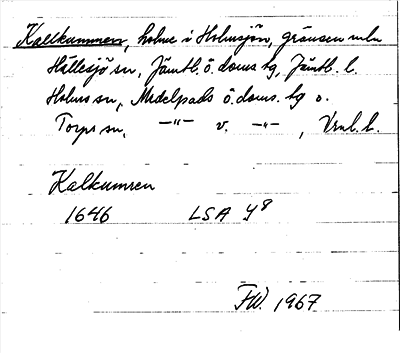 Kallkummen, holme i Holmsjön, gränsen mln
Hällesjö sn, Jämtl. ö. doms. tg, Jämtl. l.
Holms sn, Medelpads ö. doms. tg o.
Torps sn, —"— v. —"— , Vnl. l.
Kalkumren
1646 LSA Y8
FW. 1967